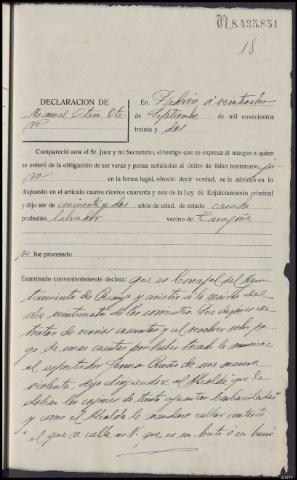 N8.425.851
18
DECLARACION DE
Manuel Otero Ote-
ro
En Padrón, a veintiocho
de Septiembre de mil novecientos
treinta y dos
Compareció ante el Sr. Juez y mi Secretario, el testigo que se expresa al margen a quien
se enteró de la obligación de ser veraz y penas señaladas al delito de falso testimonio, ju-
ró en la forma legal, ofreció decir verdad, se le advirtió en lo
dispuesto en el artículo cuatro cientos cuarenta y seis de la Ley de Enjuiciamiento criminal
y dijo ser de cincuenta y dos años de edad, de estado casado
profesión labrador vecino de
no fue procesado
Examinado convenientemente declara: que es Concejal del Ayun-
tamiento de y asistió a la sesión del
día veintiuno de los corrientes. Que después de
tratar de varios asuntos y al resolver sobre pa-
go de unas cuentas por haber tocado la música
el espectador Ramón de una manera
violenta, dijo dirigiéndose al Alcalde que de
debían los de tanto aguantar barbaridades"
y como el Alcalde le mandara callar contestó
"el que se calla es V. que es un bruto o un